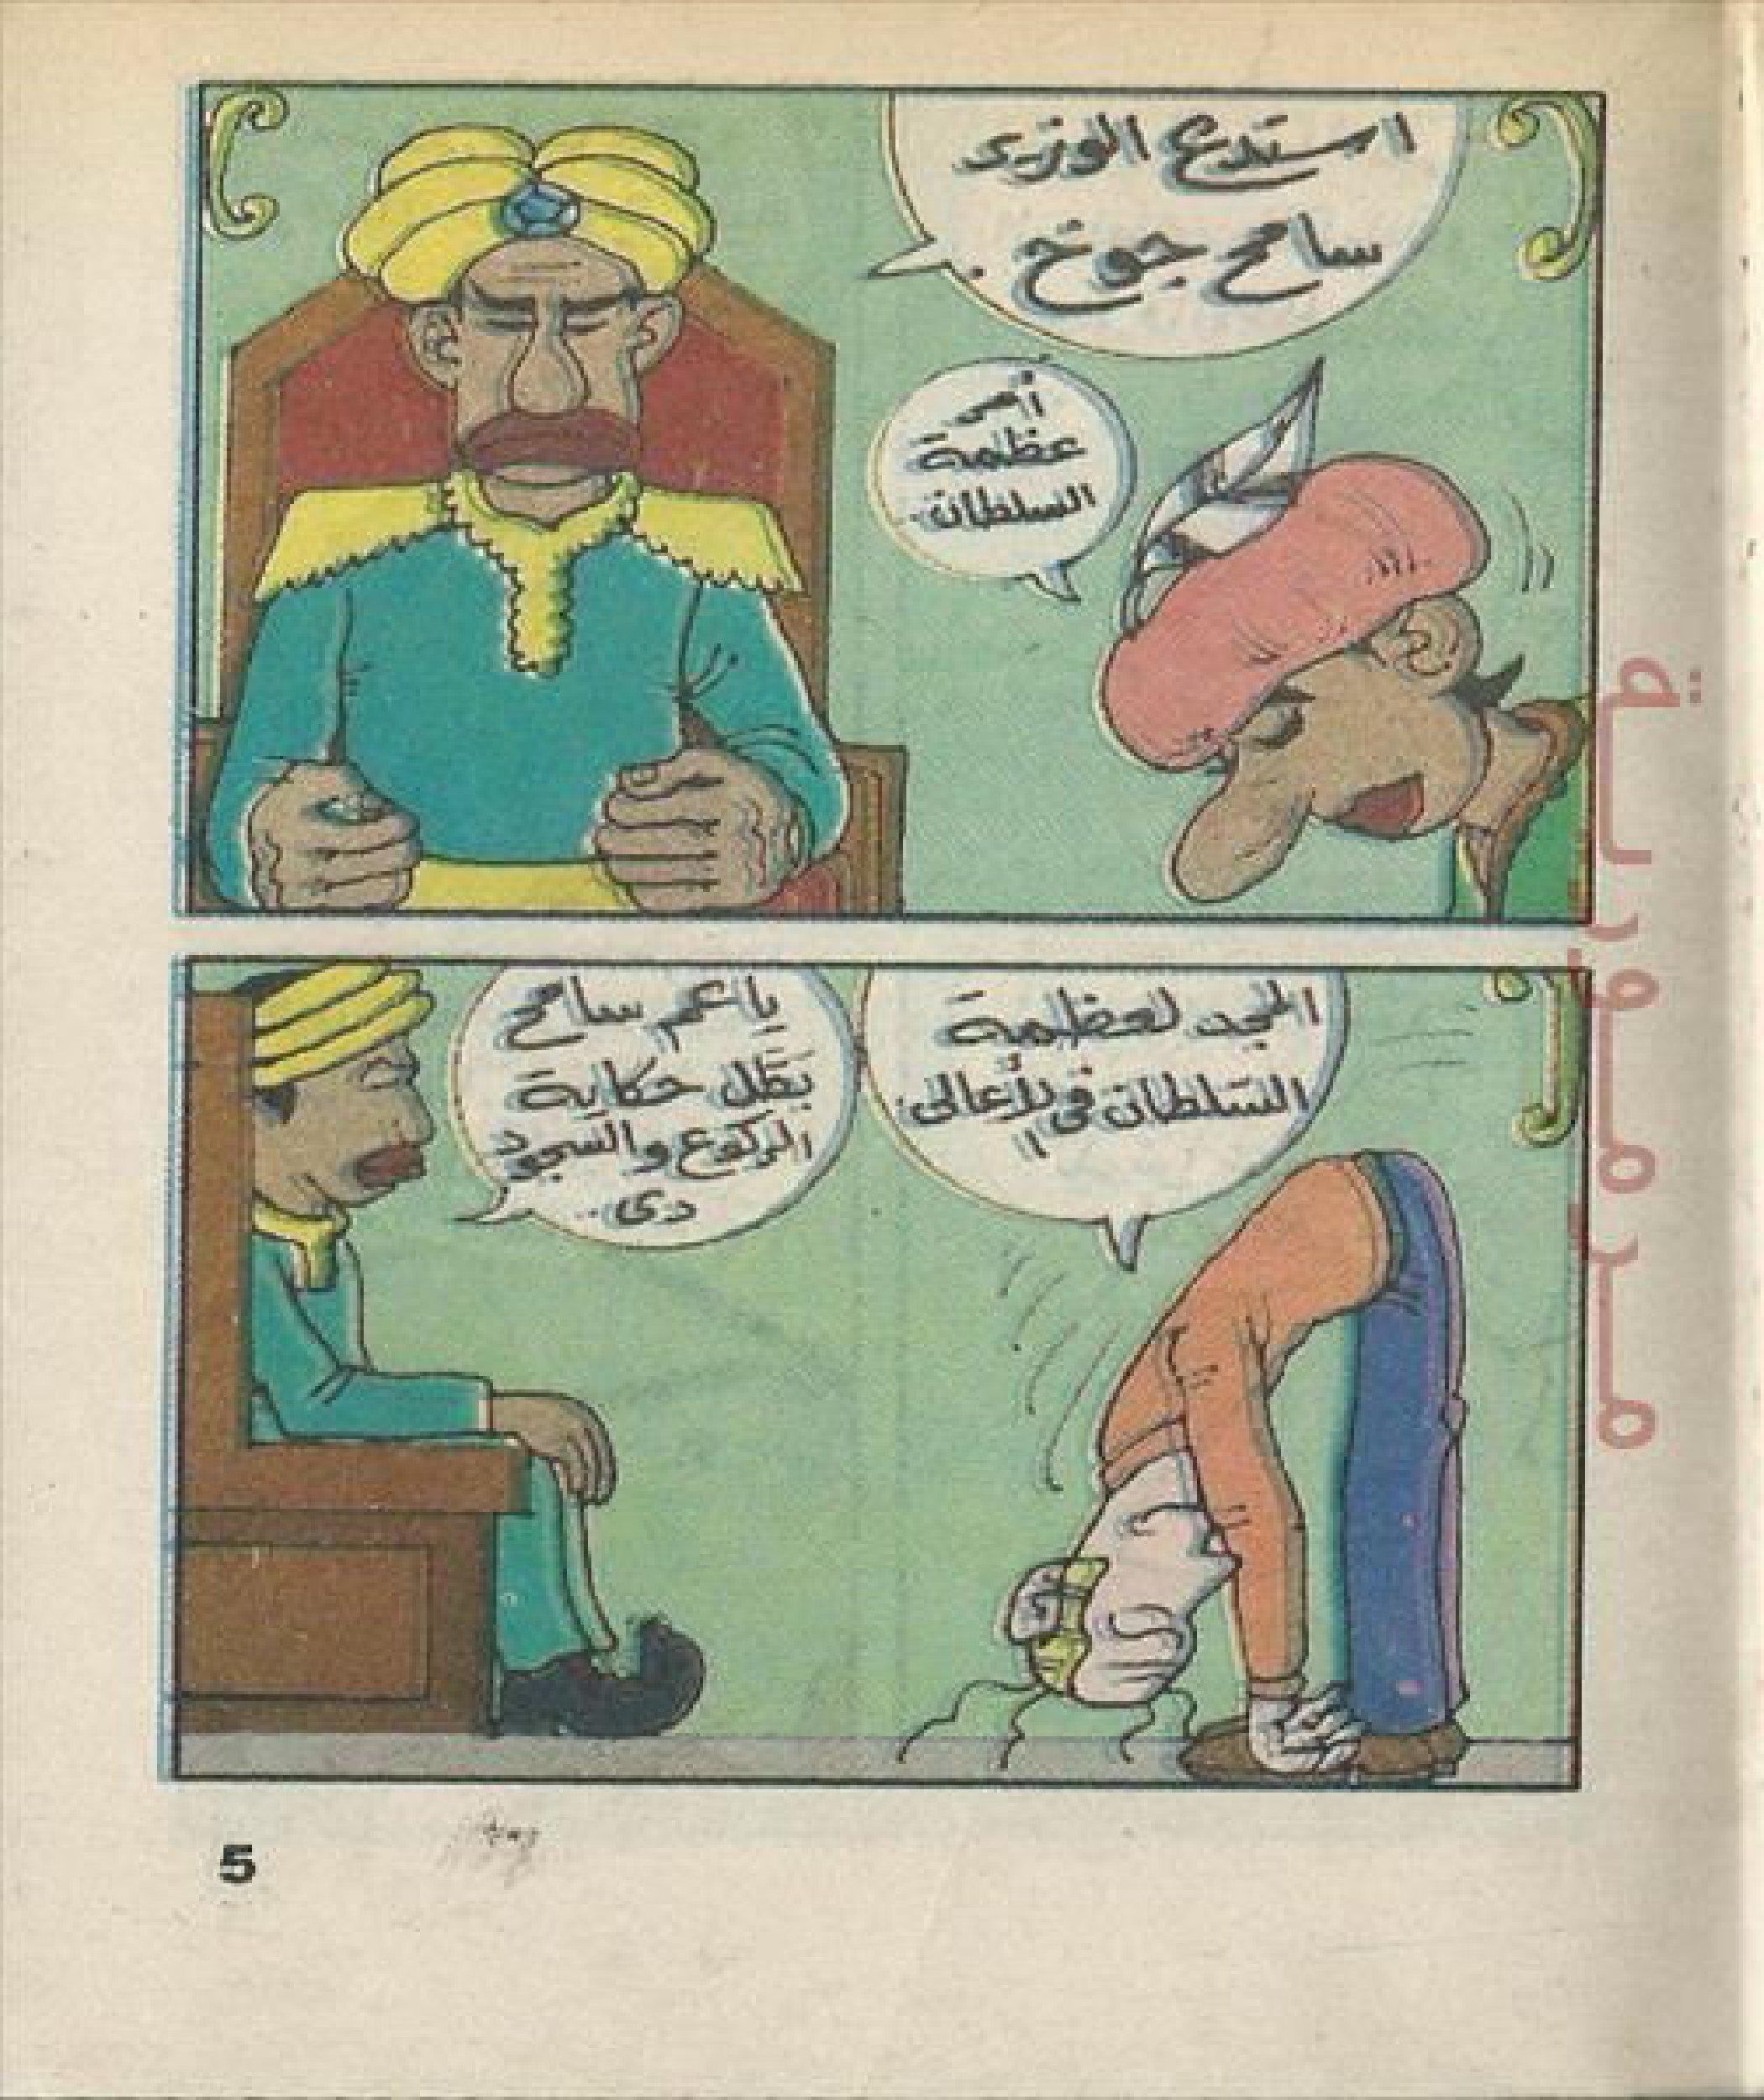 استدع الوزير
سامح جوخ
أمر
عظمة
السلطان..
المجد لعظمة
السلطان فى الأعالى..
!!
يا عم سامح
بطل حكاية
الركوع والسجود
دى..
5